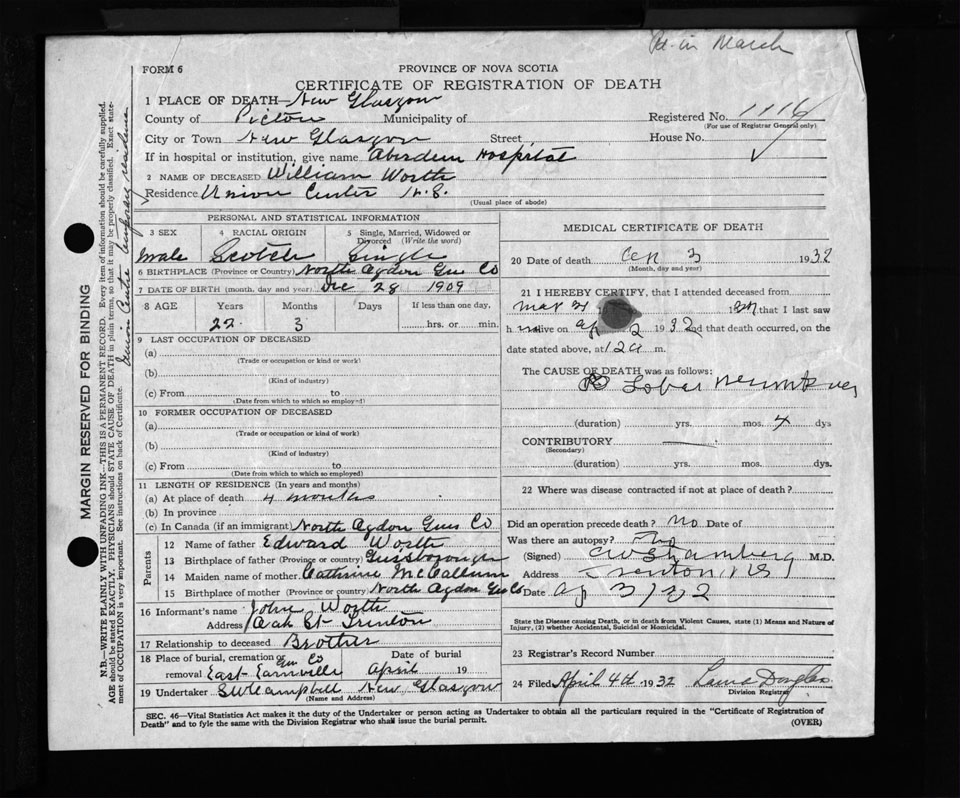 Pd. in March
FORM 6
PROVINCE OF NOVA SCOTIA
CERTIFICATE OF REGISTRATION OF DEATH
1 PLACE OF DEATH—New Glasgow
County of Pictou Municipality of Registered No. 1116
(For use of Registrar General only)
City or Town New Glasgow Street House No.
If in hospital or institution, give name Aberdeen Hospital
2 NAME OF DECEASED William Worth
Residence Union Center N.S.
(Usual place of abode)
PERSONAL AND STATISTICAL INFORMATION
3 SEX 4 RACIAL ORIGIN 5 Single, Married, Widowed or Divorced (Write the word)
Male Scotch Single
6 BIRTHPLACE (Province or Country) North Ogdon Gus Co
7 DATE OF BIRTH (month, day and year) Dec 28 1909
8 AGE Years Months Days If less than one day,
22 3 hrs. or min.
9 LAST OCCUPATION OF DECEASED
(a)
(Trade or occupation or kind or work)
(b)
(Kind of industry)
(c) From to
(Date from which to which so employed)
10 FORMER OCCUPATION OF DECEASED
(a)
(Trade or occupation or kind of work)
(b)
(Kind of industry)
(c) From to
(Date from which to which so employed)
11 LENGTH OF RESIDENCE (In years and months)
(a) At place of death 4 months
(b) In province
(c) In Canada (if an immigrant) North Ogdon Gus Co
Parents
12 Name of father Edward Worth
13 Birthplace of father (Province or country) Guysborough
14 Maiden name of mother Cathrine McCallum
15 Birthplace of mother (Province or country) North Ogdon Gus Co
16 Informant's name John Worth
Address Oak St Trenton
17 Relationship to deceased Brother
18 Place of burial, cremation Gus Co Date of burial
removal East April 19
19 Undertaker S.W. Campbell New Glasgow
(Name and Address)
MEDICAL CERTIFICATE OF DEATH
20 Date of death 3 1932
(Month, day and year)
21 I HEREBY CERTIFY, that I attended deceased from
Mar 31 that I last saw
h m alive on Ap 2 1932 and that death occurred, on the
date stated above, at 12 a m.
The CAUSE OF DEATH was as follows:
Lobar Pneumonia
(duration) yrs. mos. 4 dys
CONTRIBUTORY
(Secondary)
(duration) yrs. mos. dys.
22 Where was disease contracted if not at place of death?
Did an operation precede death? no Date of
Was there an autopsy? no
(Signed) M.D.
Address Trenton NS
Date Ap 3/32
State the Disease causing Death, or in death from Violent Causes, state (1) Means and Nature of
Injury, (2) whether Accidental, Suicidal or Homicidal.
23 Registrar's Record Number
24 Filed April 4th 1932 Douglas
Division Registrar
SEC. 46—Vital Statistics Act makes it the duty of the Undertaker or person acting as Undertaker to obtain all the particulars required in the "Certificate of Registration of
Death" and to fyle the same with the Division Registrar who shall issue the burial permit. (OVER)
MARGIN RESERVED FOR BINDING
N.B.—WRITE PLAINLY WITH UNFADING INK—THIS IS A PERMANENT RECORD. Every item of information should be carefully supplied.
AGE should be stated EXACTLY. PHYSICIANS should STATE CAUSE OF DEATH in plain terms, so that it may be properly classified. Exact state-
ment of OCCUPATION is very important. See instructions on back of Certificate.
Union Center temporary residence